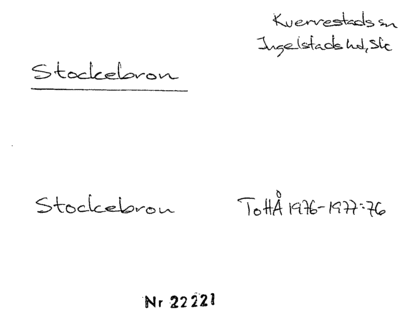 Kverrestads sn
Ingelstads hd, Sk
Stockebron
Stockebron ToHÅ 1976-1977:76
Nr 22221